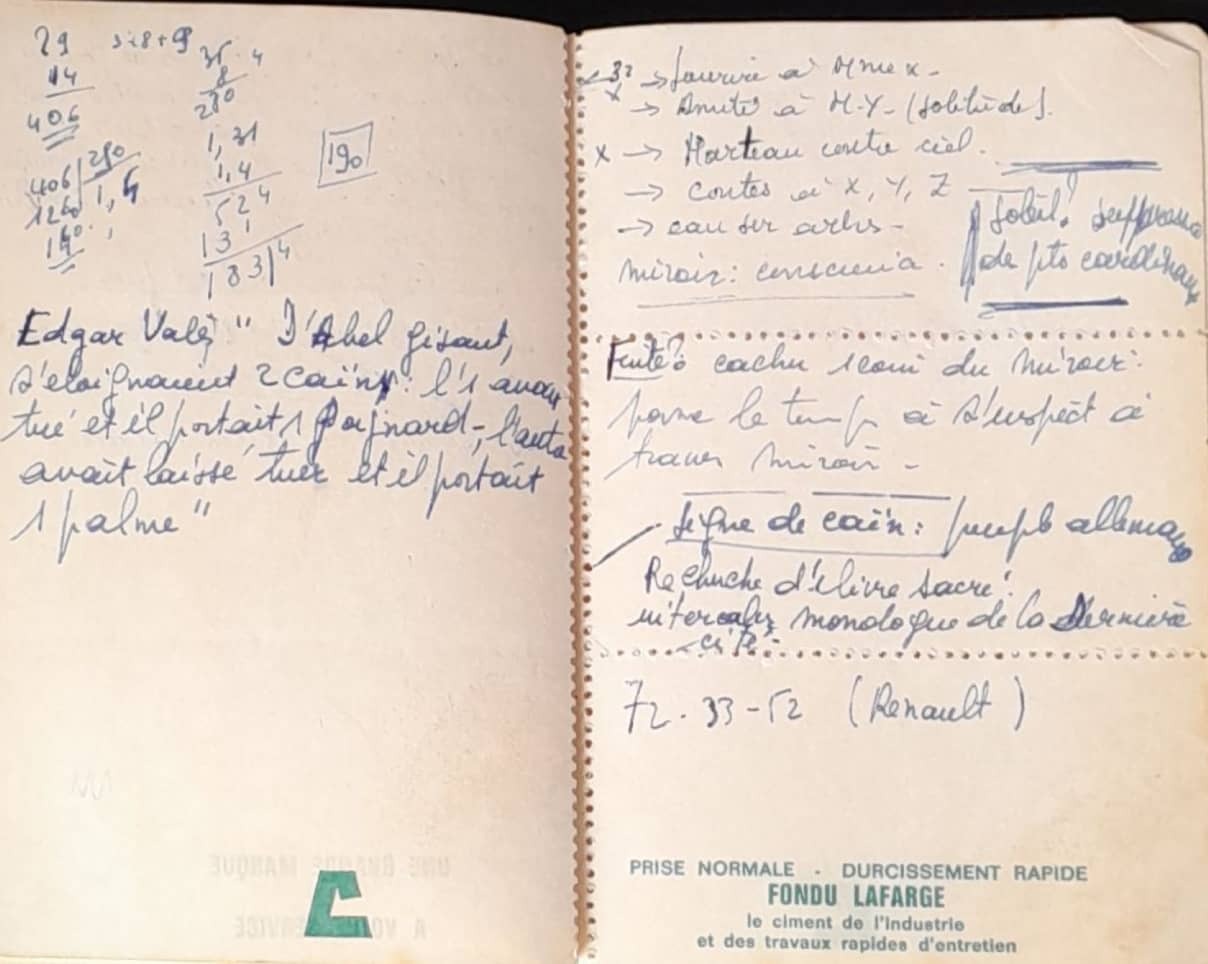 29
14
406
406 | 290
1,4
35 4
8
280
1,31
1,4
524
131
183|4
190
Edgar Valès " D'Abel gisant,
s'éloignaient 2 caïns : l'1 avait
tué et il portait 1 poignard -, l'autre
avait laissé tuer et il portait
1 palme "
→ Sourire à Mme X -
X → Amitié à M. Y - (solitude).
X → Marteau contre ciel.
→ contes à X, Y, Z
→ arbres -
miroir : conscience.
Soleil ! suppression
de pts cardinaux
Fuite ? : cacher 1 coin du miroir :
le temps à à
travers miroir -
Signe de caïn : peuple allemand
Recherche d'1 livre sacré :
intercaler monologue de la Dernière
cité -
72-33-52 (Renault)
UNE GRANDE MARQUE
A VOTRE SERVICE
PRISE NORMALE - DURCISSEMENT RAPIDE
FONDU LAFARGE
le ciment de l'industrie
et des travaux rapides d'entretien